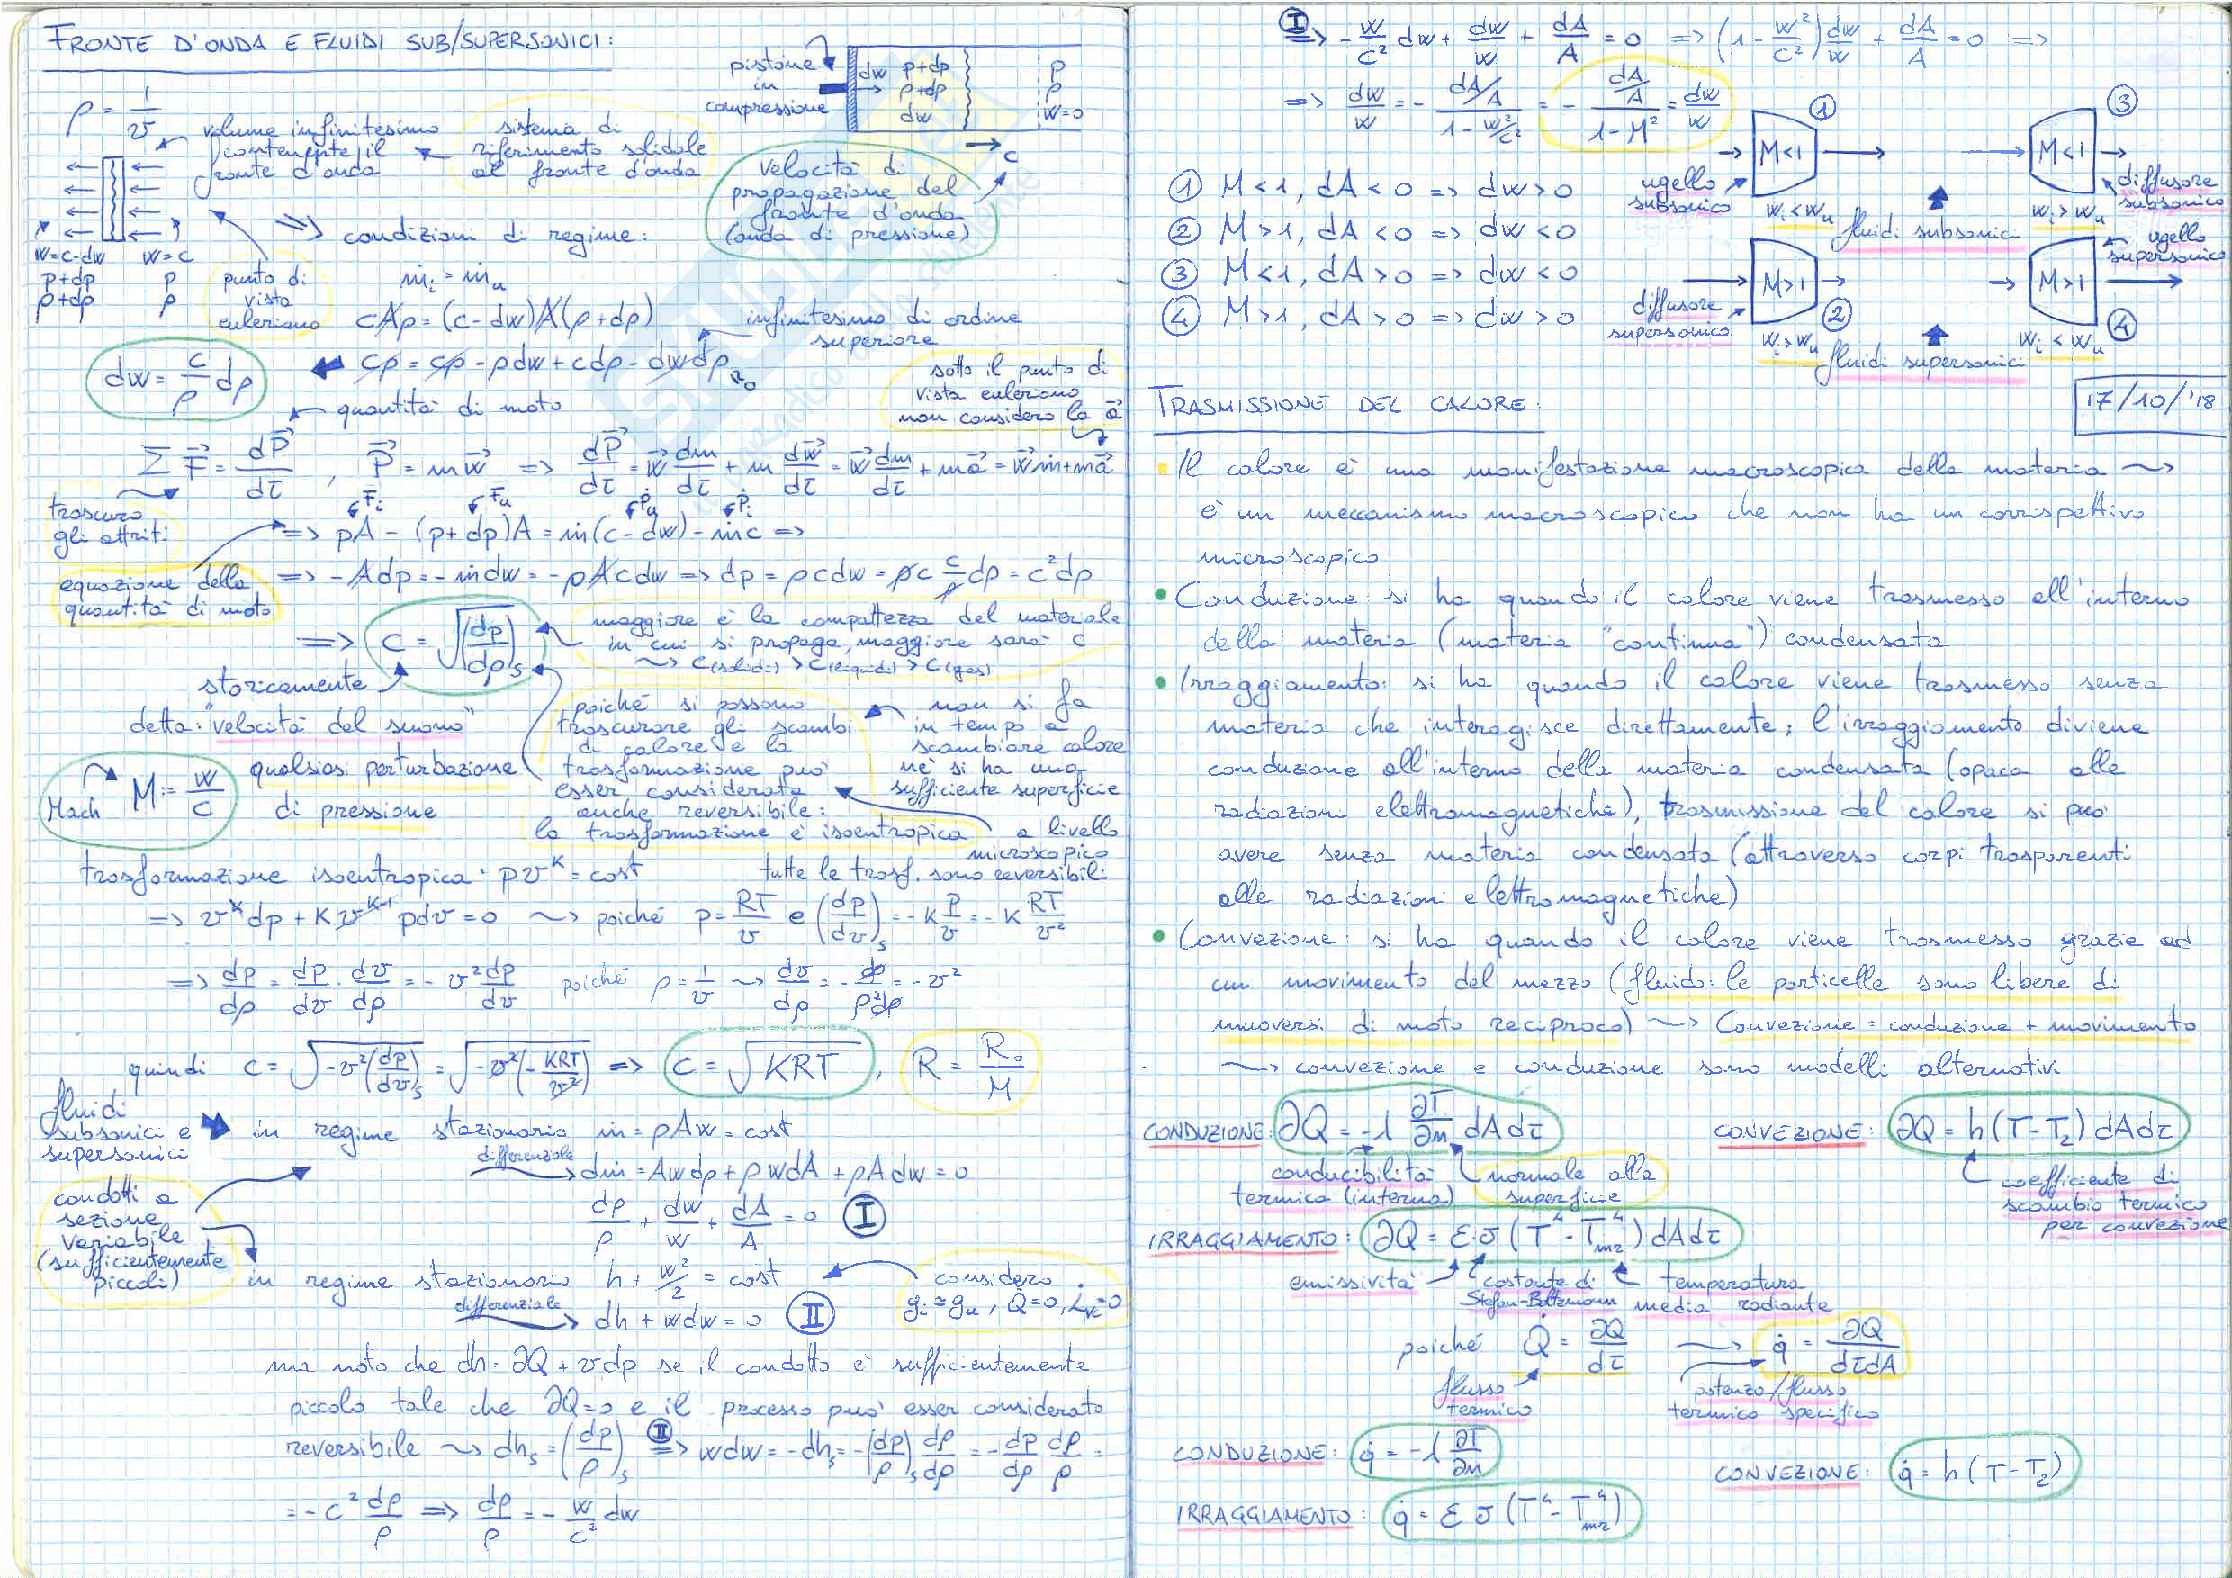 FRONTE D'ONDA E FLUIDI SUB/SUPERSONICI:
pistone in compressione
dw p+dp p
→ ρ+dρ ρ
dw w=0
→ c
ρ = 1/v
volume infinitesimo contenente il fronte d'onda
sistema di riferimento solidale al fronte d'onda
velocità di propagazione del fronte d'onda (onda di pressione)
w=c-dw w=c
p+dp p
ρ+dρ ρ
punto di vista euleriano
=> condizioni di regime:
ṁi = ṁu
cAρ = (c-dw)A(ρ+dρ)
infinitesimo di ordine superiore
cρ = cρ - ρdw + cdρ - dwdρ ≈0
dw = c/ρ dρ
sotto il punto di vista euleriano non considero la a
quantità di moto
ΣF = dP/dτ , P = mw => dP/dτ = w dm/dτ + m dw/dτ = w dm/dτ + ma = wṁ+ma
trascuro gli attriti
Fi Fu Ṗu Ṗi
=> pA - (p+dp)A = ṁ(c-dw) - ṁc =>
equazione della quantità di moto
=> -Adp = -ṁdw = -ρAcdw => dp = ρcdw = ρc c/ρ dρ = c²dρ
=> c = √(dp/dρ)s
maggiore è la compattezza del materiale in cui si propaga, maggiore sarà c
~> c(solidi) > c(liquidi) > c(gas)
storicamente detta: "velocità del suono"
poiché si possono trascurare gli scambi di calore e la trasformazione può esser considerata anche reversibile:
la trasformazione è isoentropica
non si fa in tempo a scambiare calore né si ha una sufficiente superficie
Mach M := w/c
qualsiasi perturbazione di pressione
a livello microscopico tutte le trasf. sono reversibili
trasformazione isoentropica: pv^K = cost
=> v^K dp + K v^(K-1) pdv = 0 ~> poiché p = RT/v e (dp/dv)s = -K p/v = -K RT/v²
=> dp/dρ = dp/dv · dv/dρ = -v² dp/dv poiché ρ = 1/v ~> dv/dρ = - dρ/ρ²dρ = -v²
quindi c = √-v²(dp/dv)s = √-v²(-KRT/v²) => c = √KRT , R = R₀/M
fluidi subsonici e supersonici
in regime stazionario ṁ = ρAw = cost
differenziale → dṁ = Awdρ + ρwdA + ρAdw = 0
dρ/ρ + dw/w + dA/A = 0 (I)
condotti a sezione variabile (sufficientemente piccoli)
in regime stazionario h + w²/2 = cost
considero gi ≈ gu, Q̇=0, L̇vc=0
differenziale → dh + wdw = 0 (II)
ma noto che dh = ∂Q + vdp se il condotto è sufficientemente
piccolo tale che ∂Q=0 e il processo può esser considerato
reversibile ~> dhs = (dp/ρ)s (II)=> wdw = -dhs = -(dp/ρ)s dρ/dρ = - dp/dρ dρ/ρ =
= -c² dρ/ρ => dρ/ρ = - w/c² dw
(I)=> - w/c² dw + dw/w + dA/A = 0 => (1 - w²/c²) dw/w + dA/A = 0 =>
=> dw/w = - (dA/A)/(1 - w²/c²) = - (dA/A)/(1-M²) = dw/w
① M<1, dA<0 => dw>0
② M>1, dA<0 => dw<0
③ M<1, dA>0 => dw<0
④ M>1, dA>0 => dw>0
① M<1 ③ M<1
ugello subsonico
wi<wu
diffusore subsonico
wi>wu
fluidi subsonici
M>1 ② M>1 ④
ugello supersonico
diffusore supersonico
wi>wu wi<wu
fluidi supersonici
17/10/'18
TRASMISSIONE DEL CALORE:
Il calore è una manifestazione macroscopica della materia ~>
è un meccanismo macroscopico che non ha un corrispettivo
microscopico
• Conduzione: si ha quando il calore viene trasmesso all'interno
della materia (materia "continua") condensata
• Irraggiamento: si ha quando il calore viene trasmesso senza
materia che interagisce direttamente; l'irraggiamento diviene
conduzione all'interno della materia condensata (opaca alle
radiazioni elettromagnetiche), trasmissione del calore si può
avere senza materia condensata (attraverso corpi trasparenti
alle radiazioni elettromagnetiche)
• Convezione: si ha quando il calore viene trasmesso grazie ad
un movimento del mezzo (fluido: le particelle sono libere di
muoversi di moto reciproco) ~> Convezione = conduzione + movimento
~> convezione e conduzione sono modelli alternativi
CONDUZIONE: ∂Q = -λ ∂T/∂n dAdτ CONVEZIONE: ∂Q = h(T-T₂)dAdτ
conducibilità termica (interna)
normale alla superficie
coefficiente di scambio termico per convezione
IRRAGGIAMENTO: ∂Q = ε·σ(T⁴-T⁴mr)dAdτ
emissività costante di Stefan-Boltzmann temperatura media radiante
poiché Q̇ = ∂Q/dτ → q̇ = ∂Q/dτdA
flusso termico potenza/flusso termico specifico
CONDUZIONE: q̇ = -λ ∂T/∂n
CONVEZIONE: q̇ = h(T-T₂)
IRRAGGIAMENTO: q̇ = εσ(T⁴-T⁴mr)